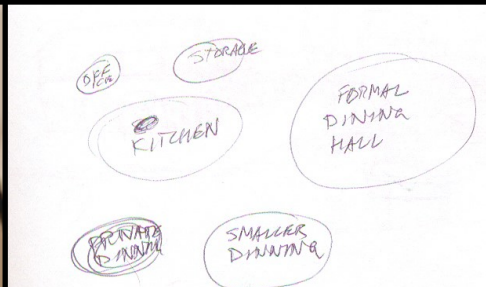 OFF
ICE
STORAGE
KITCHEN
FORMAL
DINING
HALL
PRIVATE
DINNING
SMALLER
DINNING